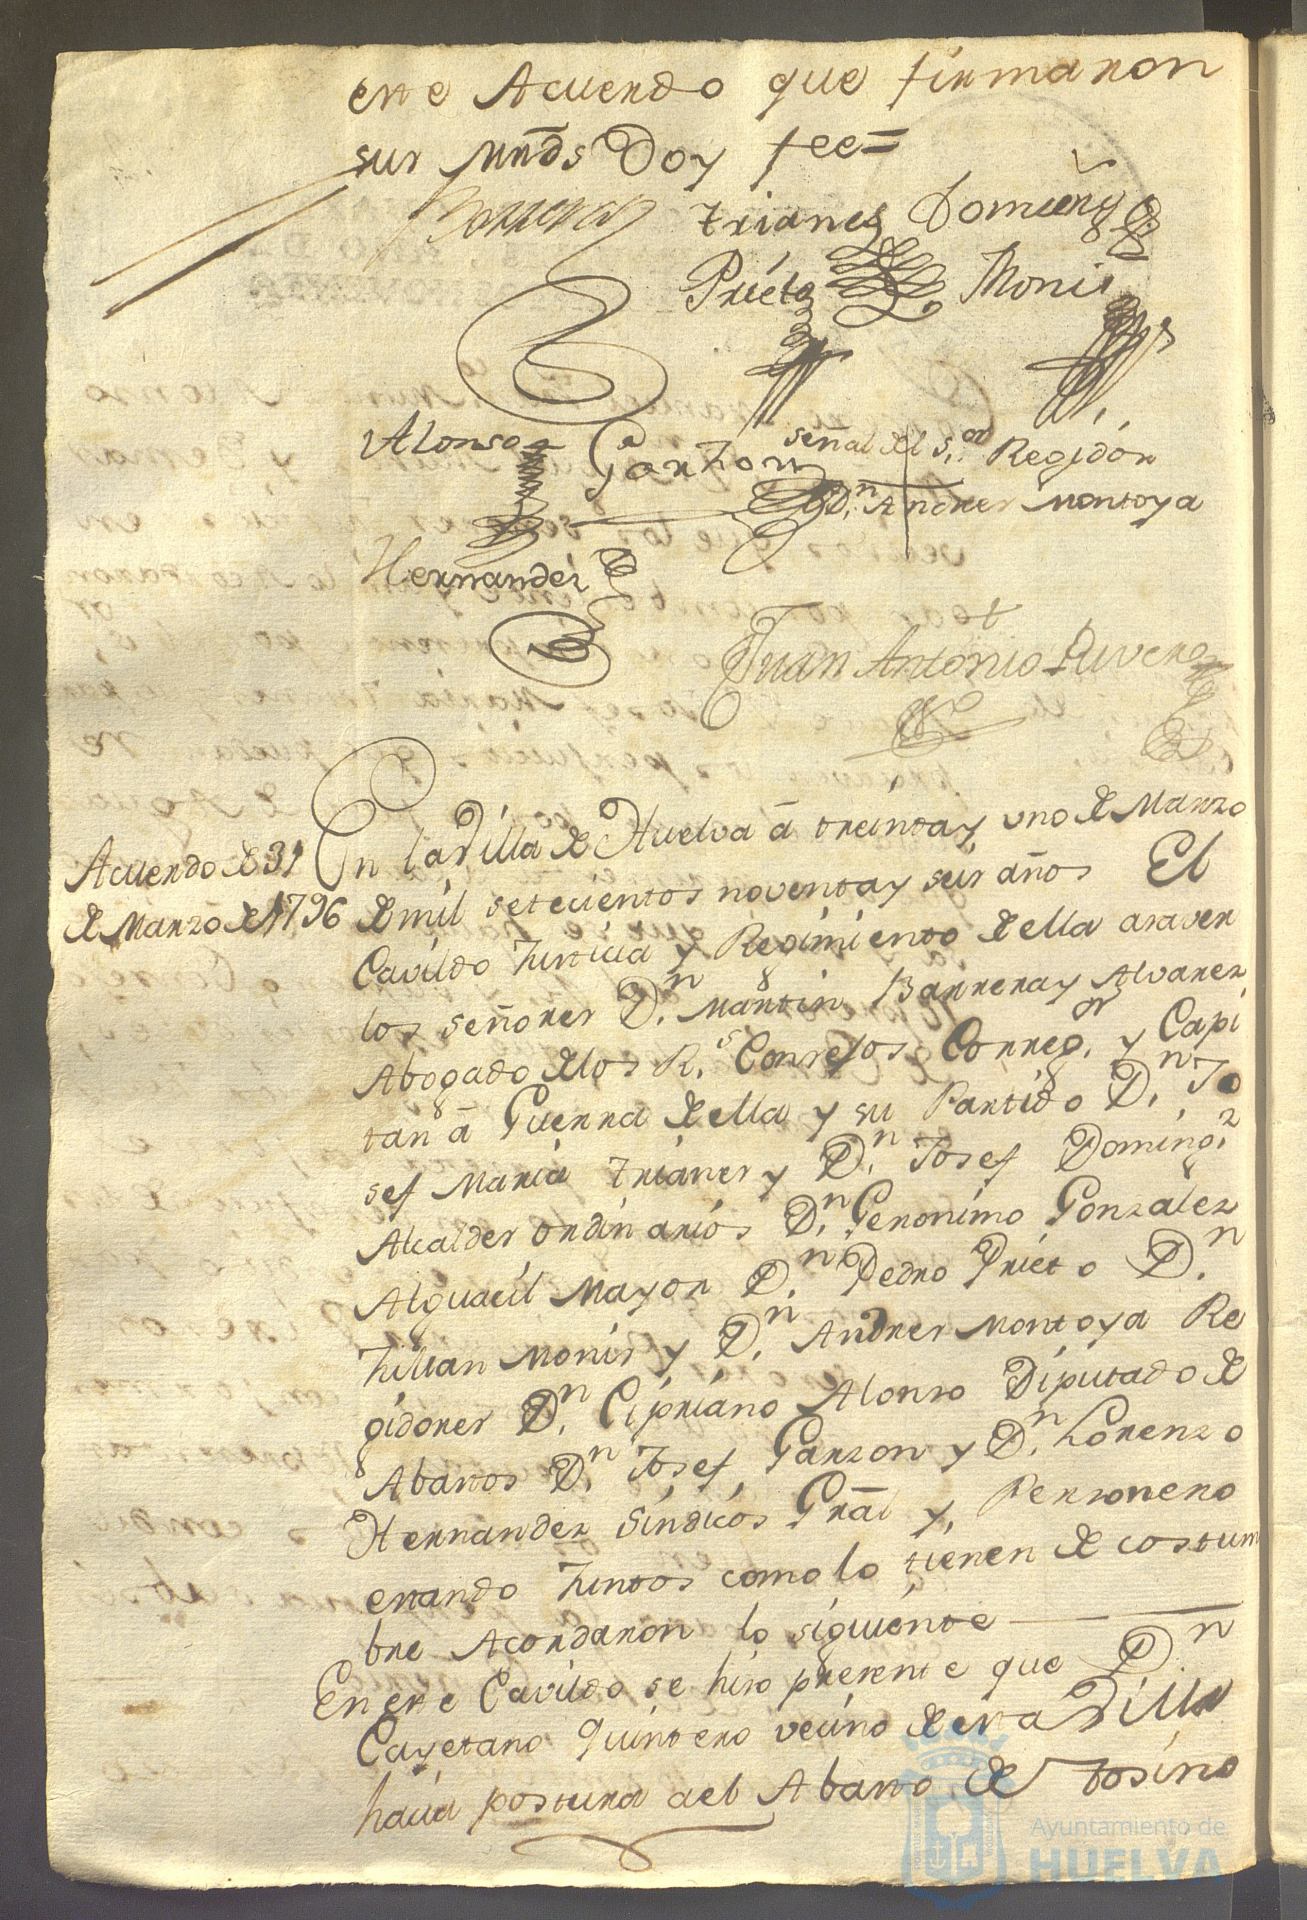 este Acuerdo que firmaron
sus Mrds Doy fee=
Barrera Trianes Doming.z
Prieto Monis
Alonso Garzon señal del S.or Regidor
D.n Andres Montoya
Hernandez
Juan Antonio Rivero
Acuerdo de 31
de Marzo de 1796
En la Villa de Huelva â treinta y uno de Marzo
de mil setecientos noventa y seis años El
Cavildo Justicia y Regimiento de ella asaver
los señores D.n Martin Barrera y Alvarez
Abogado de los R.s Consejos Correg.or y Capi
tan â Guerra de ella y su Partido D.n Jo
sef Maria Trianes y D.n Josef Doming.z
Alcaldes ordinarios D.n Geronimo Gonzalez
Alguacil Mayor D.n Pedro Prieto D.n
Julian Monis y D.n Andres Montoya Re
gidores D.n Cipriano Alonso Diputado de
Abastos D.n Josef Garzon y D.n Lorenzo
Hernandez Sindicos Gral y Personero
estando Juntos como lo tienen de costum
bre Acordaron lo siguiente
En este Cavildo se hiso presente que D.n
Cayetano Quintero vecino de esta Villa
hacia postura del Abasto de tosino
Ayuntamiento de
HUELVA